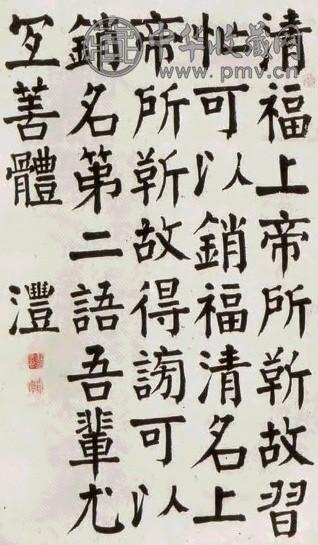 中华收藏网
www.pmv.cn
清福上帝所靳故習
忙可以銷福清名上
帝所靳故得謗可以
銷名第二語吾輩尤
冝善體 澧